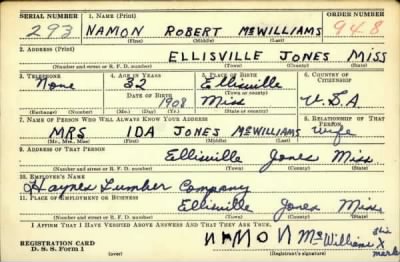 SERIAL NUMBER 1. NAME (Print) ORDER NUMBER
293 NAMON ROBERT McWILLIAMS 948
(First) (Middle) (Last)
2. ADDRESS (Print)
ELLISVILLE JONES MISS
(Number and street or R. F. D. number) (Town) (County) (State)
3. TELEPHONE 4. AGE IN YEARS 5. PLACE OF BIRTH 6. COUNTRY OF CITIZENSHIP
None 32 Ellisville
DATE OF BIRTH (Town or county)
1908 Miss U.S.A
(Exchange) (Number) (Mo.) (Day) (Yr.) (State or country)
7. NAME OF PERSON WHO WILL ALWAYS KNOW YOUR ADDRESS 8. RELATIONSHIP OF THAT PERSON
MRS IDA JONES McWILLIAMS wife
(Mr., Mrs., Miss) (First) (Middle) (Last)
9. ADDRESS OF THAT PERSON
Ellisville Jones Miss
(Number and street or R. F. D. number) (Town) (County) (State)
10. EMPLOYER'S NAME
Haynes Lumber Company
11. PLACE OF EMPLOYMENT OR BUSINESS
Ellisville Jones Miss
(Number and street or R. F. D. number) (Town) (County) (State)
I AFFIRM THAT I HAVE VERIFIED ABOVE ANSWERS AND THAT THEY ARE TRUE.
NAMON McWilliams his X mark
REGISTRATION CARD
D. S. S. Form 1 (over) (Registrant's signature)